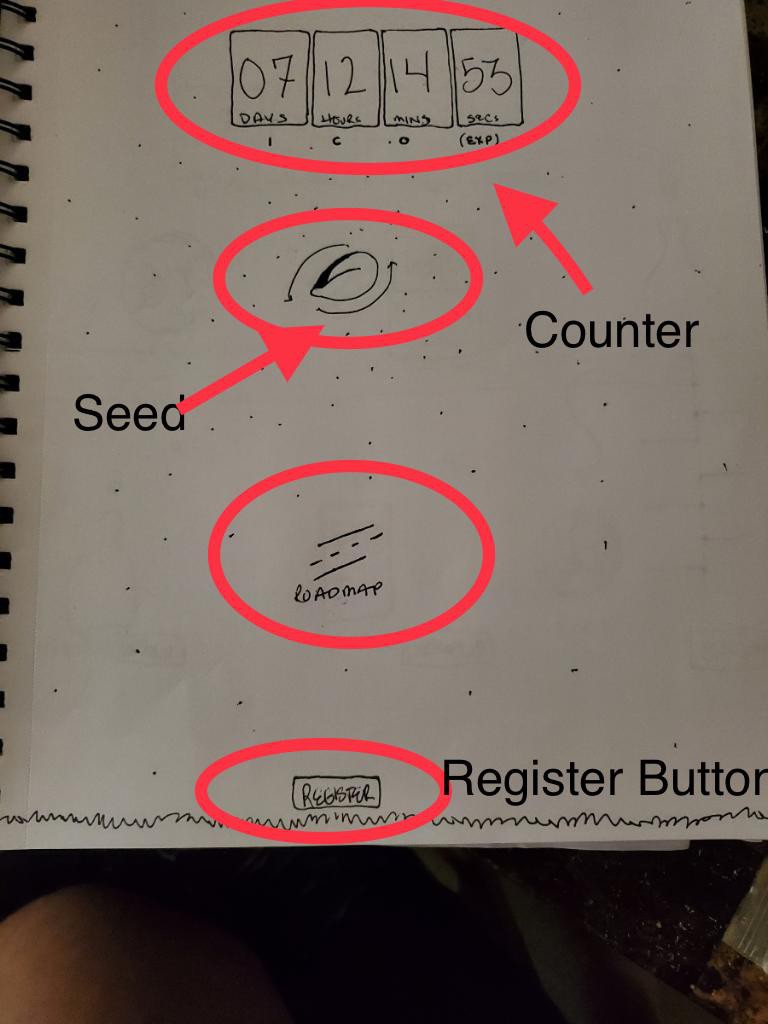 07 12 14 53
DAYS HOURS MINS SECS
I C O (EXP)
Counter
Seed
ROADMAP
Register Button
REGISTER